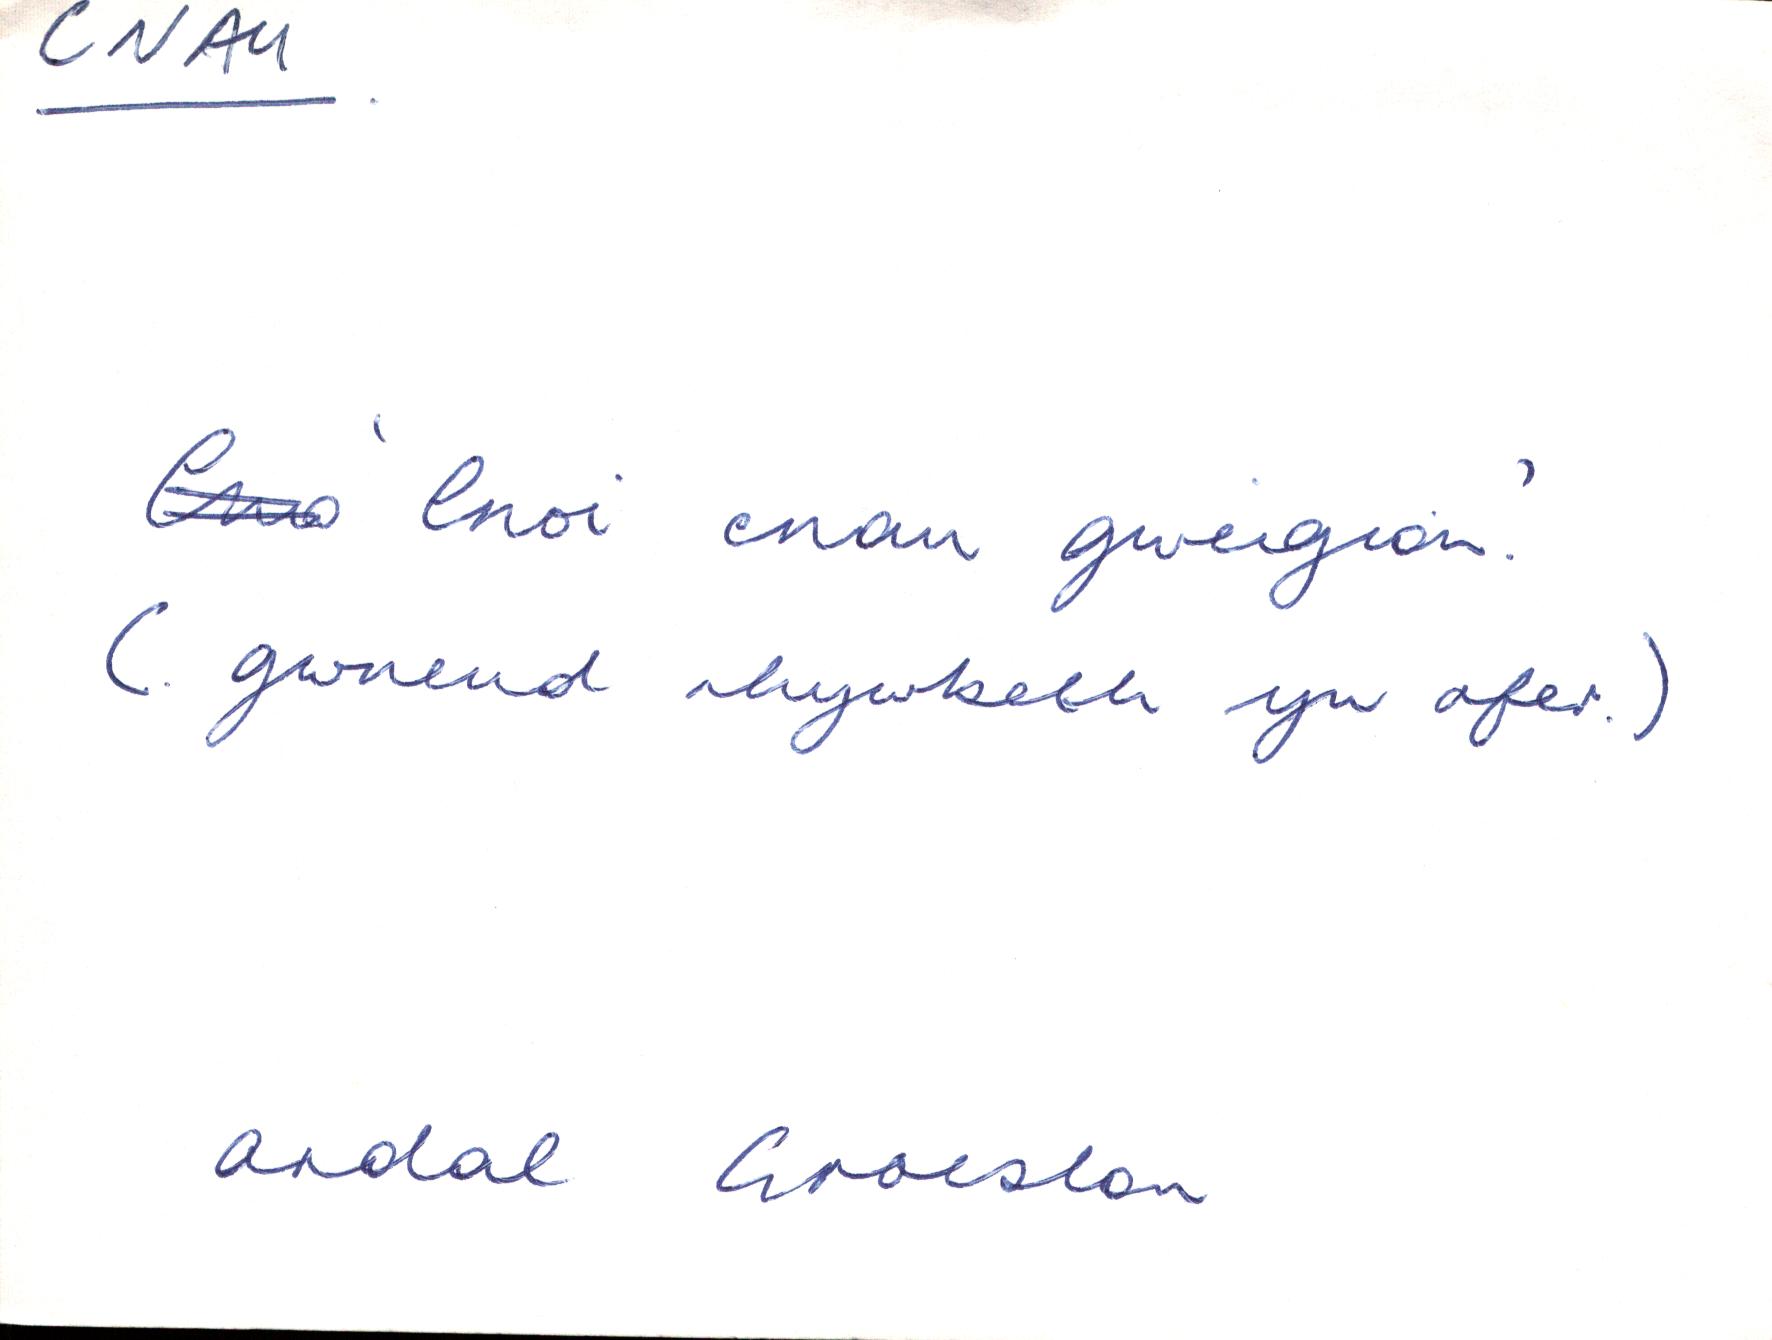 CNAU.
'Cnoi cnau gweigion.'
(. gwneud rhywbeth yn ofer.)
ardal Groeslon